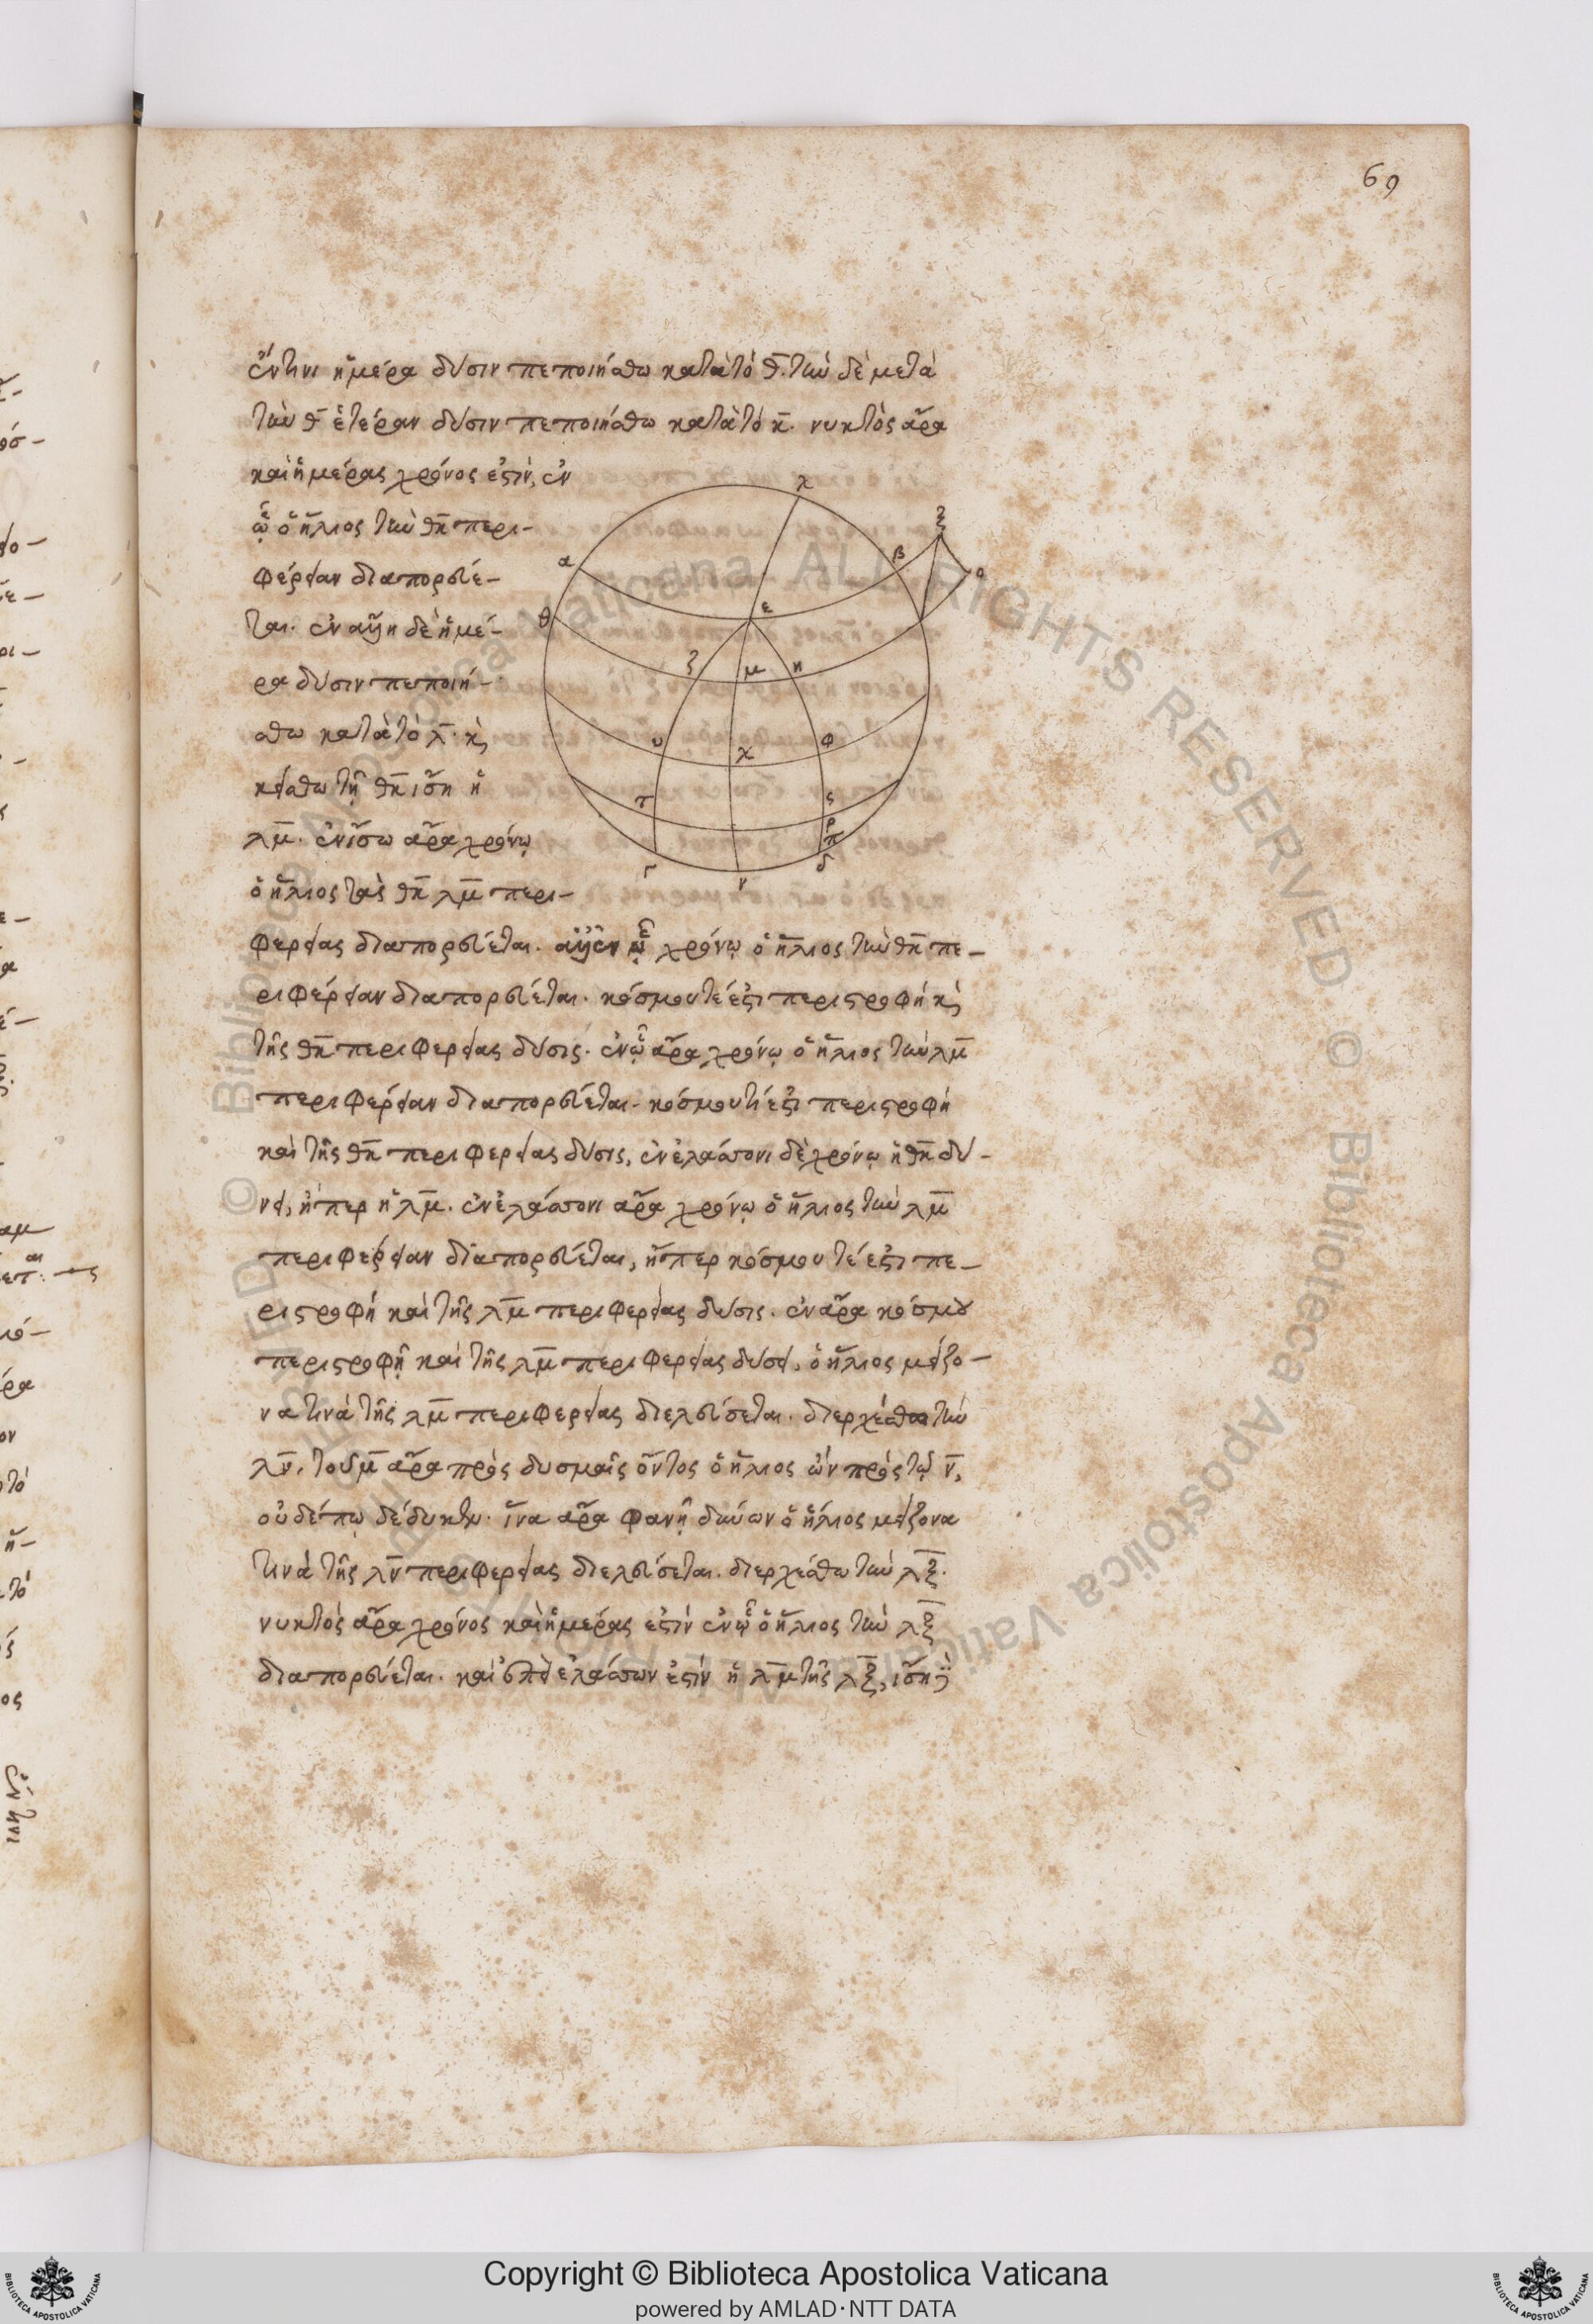 69
ἔν τινι ἡμέρα δύσιν πεποιήσθω κατὰ τὸ θ. τὴν δὲ μετὰ
τὴν θ ἑτέραν δύσιν πεποιήσθω κατὰ τὸ κ. νυκτὸς ἄρα
καὶ ἡμέρας χρόνος ἐστὶν, ἐν
ᾧ ὁ ἥλιος τὴν θκ περι-
φέρειαν διαπορεύε-
ται. ἐν αὐτῇ δὲ ἡμέ-
ρα δύσιν πεποιή-
σθω κατὰ τὸ λ. κὶ
κείσθω τῇ θκ ἴση ἡ
λμ. ἐν ἴσω ἄρα χρόνῳ
ὁ ἥλιος τὰς θκ λμ περι-
φερείας διαπορεύεται. ἀλλ' ἐν ᾧ χρόνῳ ὁ ἥλιος τὴν θκ πε-
ριφέρειαν διαπορεύεται. κόσμου τέ ἐστι περιστροφή κὶ
τῆς θκ περιφερείας δύσις. ἐν ᾧ ἄρα χρόνῳ ὁ ἥλιος τὴν λμ
περιφέρειαν διαπορεύεται. κόσμου τέ ἐστι περιστροφή
καὶ τῆς θκ περιφερείας δύσις, ἐν ἐλάσσονι δὲ χρόνῳ ἡ θκ δύ-
νει, ἤπερ ἡ λμ. ἐν ἐλάσσονι ἄρα χρόνῳ ὁ ἥλιος τὴν λμ
περιφέρειαν διαπορεύεται, ἤπερ κόσμου τέ ἐστι πε-
ριστροφή καὶ τῆς λμ περιφερείας δύσις. ἐν ἄρα κόσμου
περιστροφῇ καὶ τῆς λμ περιφερείας δύσει, ὁ ἥλιος μείζο-
να τινὰ τῆς λμ περιφερείας διελεύσεται. διερχέσθω τὴν
λν. τοῦ μ ἄρα πρὸς δυσμαῖς ὄντος ὁ ἥλιος ὢν πρὸς τῷ ν,
οὐδέπω δέδυκεν. ἵνα ἄρα φανῇ δύνων ὁ ἥλιος μείζονα
τινὰ τῆς λν περιφερείας διελεύσεται. διερχέσθω τὴν λξ.
νυκτὸς ἄρα χρόνος καὶ ἡμέρας ἐστὶν ἐν ᾧ ὁ ἥλιος τὴν λξ
διαπορεύεται. καὶ ἐπεὶ ἐλάσσων ἐστὶν ἡ λμ τῆς λξ, ἴση δὲ
χ
ξ
α
β
ο
θ
ε
ζ
μ
η
υ
χ
φ
τ
ς
ρ
π
γ
ν
δ
ἔν τινι
© Biblioteca Apostolica Vaticana ALL RIGHTS RESERVED
Copyright © Biblioteca Apostolica Vaticana
powered by AMLAD·NTT DATA
BIBLIOTECA APOSTOLICA VATICANA
BIBLIOTECA APOSTOLICA VATICANA